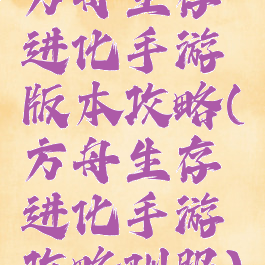 方舟生存
进化手游
版本攻略(
方舟生存
进化手游
攻略